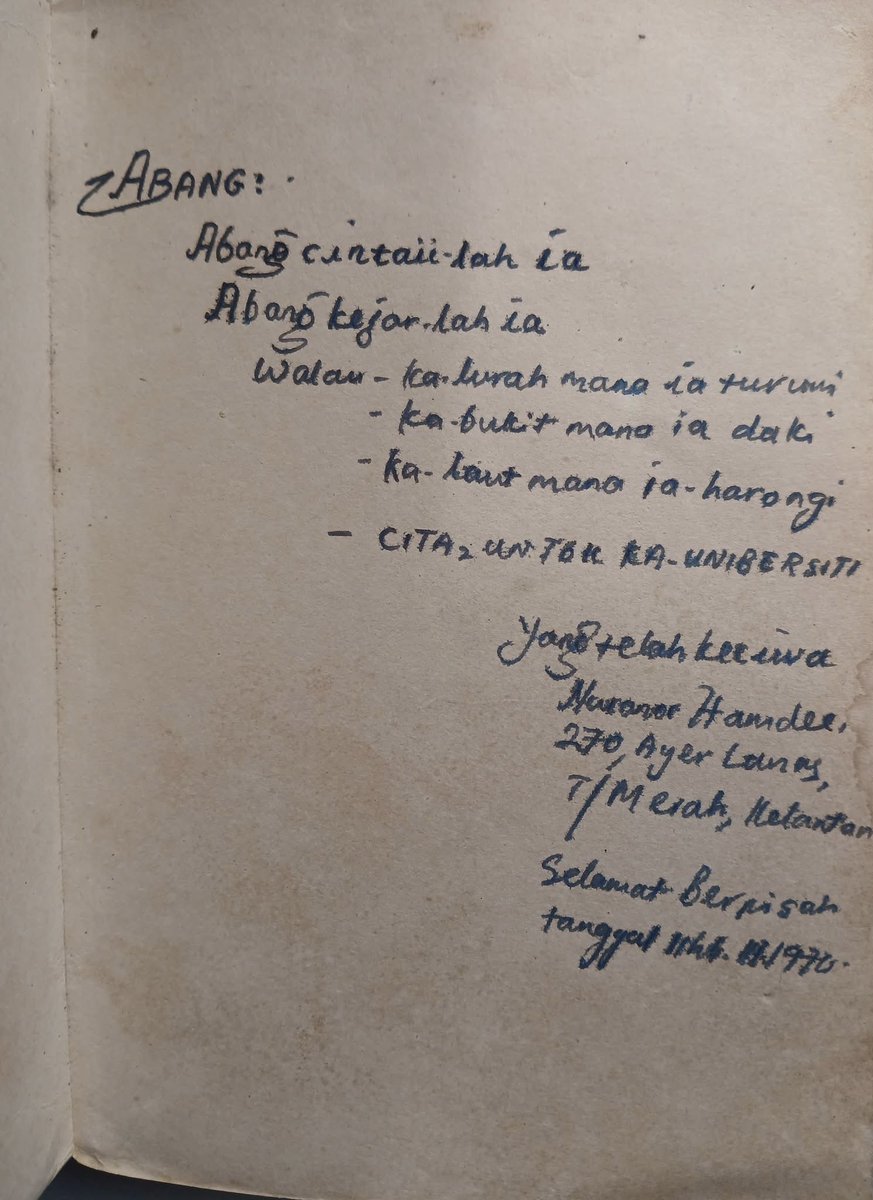 ABANG:
Abang cintaii-lah ia
Abang kejar-lah ia
Walau - ka-lurah mana ia turuni
- ka-bukit mana ia daki
- ka-laut mana ia-harongi
- CITA2 UNTOK KA-UNIBERSITI
Yang telah keciwa
Hamdee,
270, Ayer Lanas,
T/Merah, Kelantan
Selamat Berpisah
tanggal 1970.